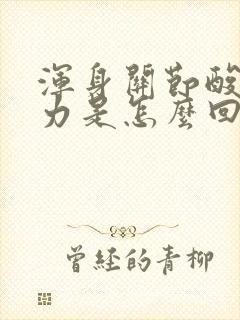 渾身關節酸
力是怎麼回
曾經的青柳